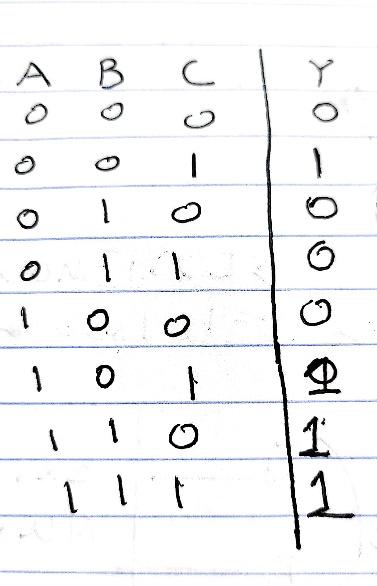 A B C Y
0 0 0 0
0 0 1 1
0 1 0 0
0 1 1 0
1 0 0 0
1 0 1
1 1 0 1
1 1 1 1